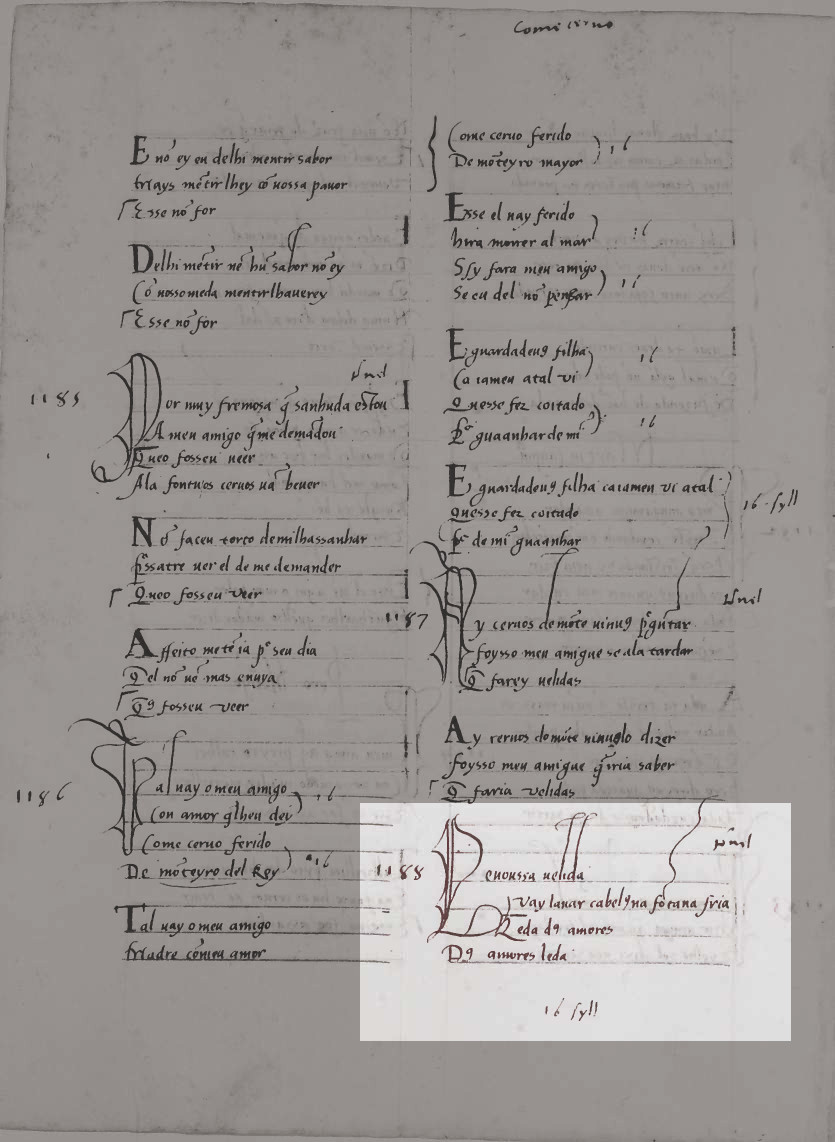 E nō ey eu delhi mentir sabor
mays mētirlhey cō uossa pauor
Esse nō for
Delhi mētir nē hũ sabor nō ey
Cō uossomeda mentirlhauerey
Esse nō for
1185
Por muy fremosa q̃ sanhuda estou
A meu amigo q̃me demādou
Queo fosseu ueer
Ala fontuos ceruos uā beuer
Nō faceu torto demilhassanhar
Queo fosseu veer
Affeito me tē ia pᵉ seu dia
Qel nō uē mas enuya
Qꝯ fosseu veer
1186
Tal uay o meu amigo
Con amor q̃lheu dei
16
Come ceruo ferido
De mōteyro del Rey
16
Tal uay o meu amigo
madre cōmeu amor
Come ceruo ferido
De mōteyro mayor
16
Esse el uay ferido
hira morrer al mar
16
Ssy fara meu amigo
Se eu del nō penssar
16
E guardadeuꝯ filha
Ca iameu atal vi
16
Quesse fez coitado
Pᵉ guaanhar de mī
16
E guardadeuꝯ filha caiameu vi atal
Quesse fez coitado
Pᵉ de mī guaanhar
16 syll
1187
Ay ceruos demōte uinuꝯ p̃gūtar
foysso meu amigue se ala tardar
Q̄ farey uelidas
Ay ceruos domōte uinuolo dizer
foysso meu amigue q̃iria saber
Q̄ faria uelidas
1188
Leuoussa uelida
Vay lauar cabelꝯ na fōtana fria
Leda dꝯ amores
Dꝯ amores leda
16 syll